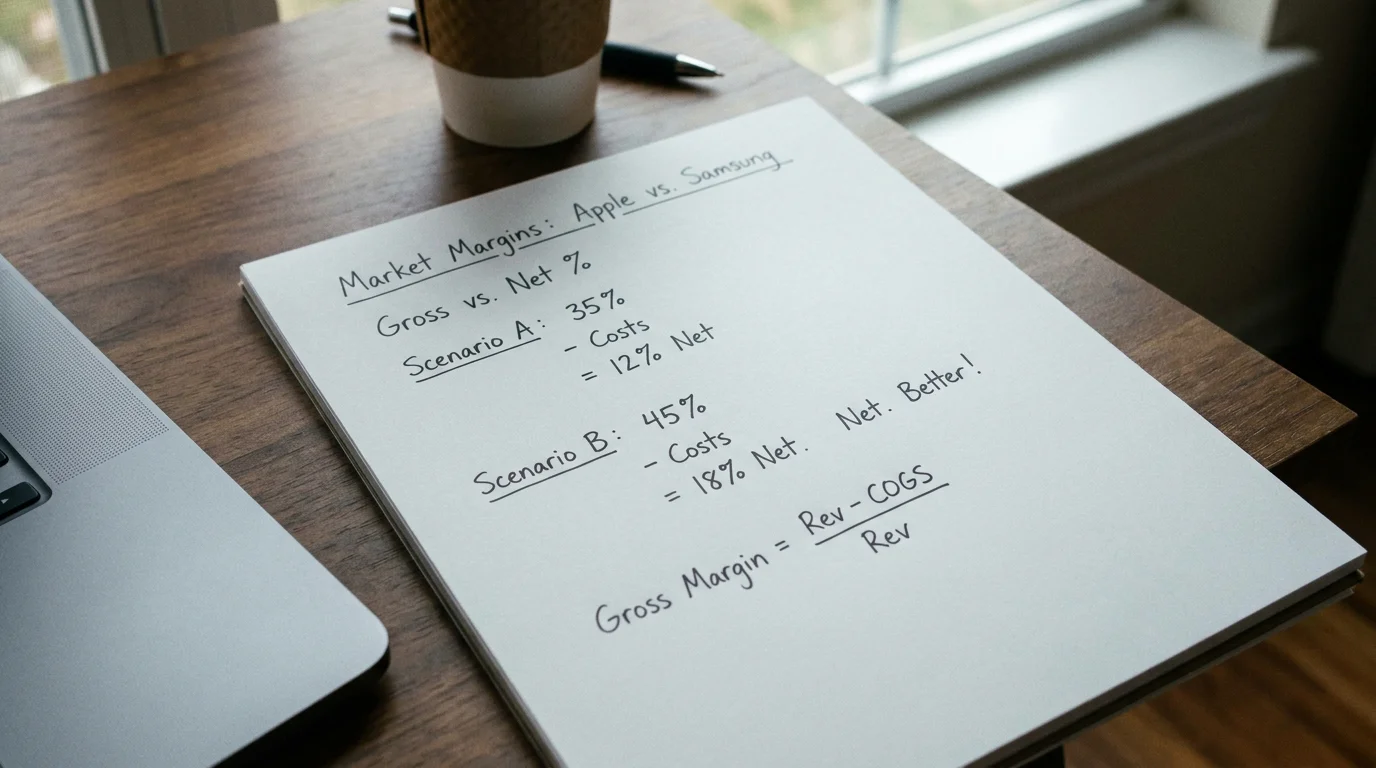 Market Margins: Apple vs. Samsung
Gross vs. Net %
Scenario A: 35%
- Costs
= 12% Net
Scenario B: 45%
- Costs
= 18% Net. Net. Better!
Gross Margin = Rev - COGS
Rev